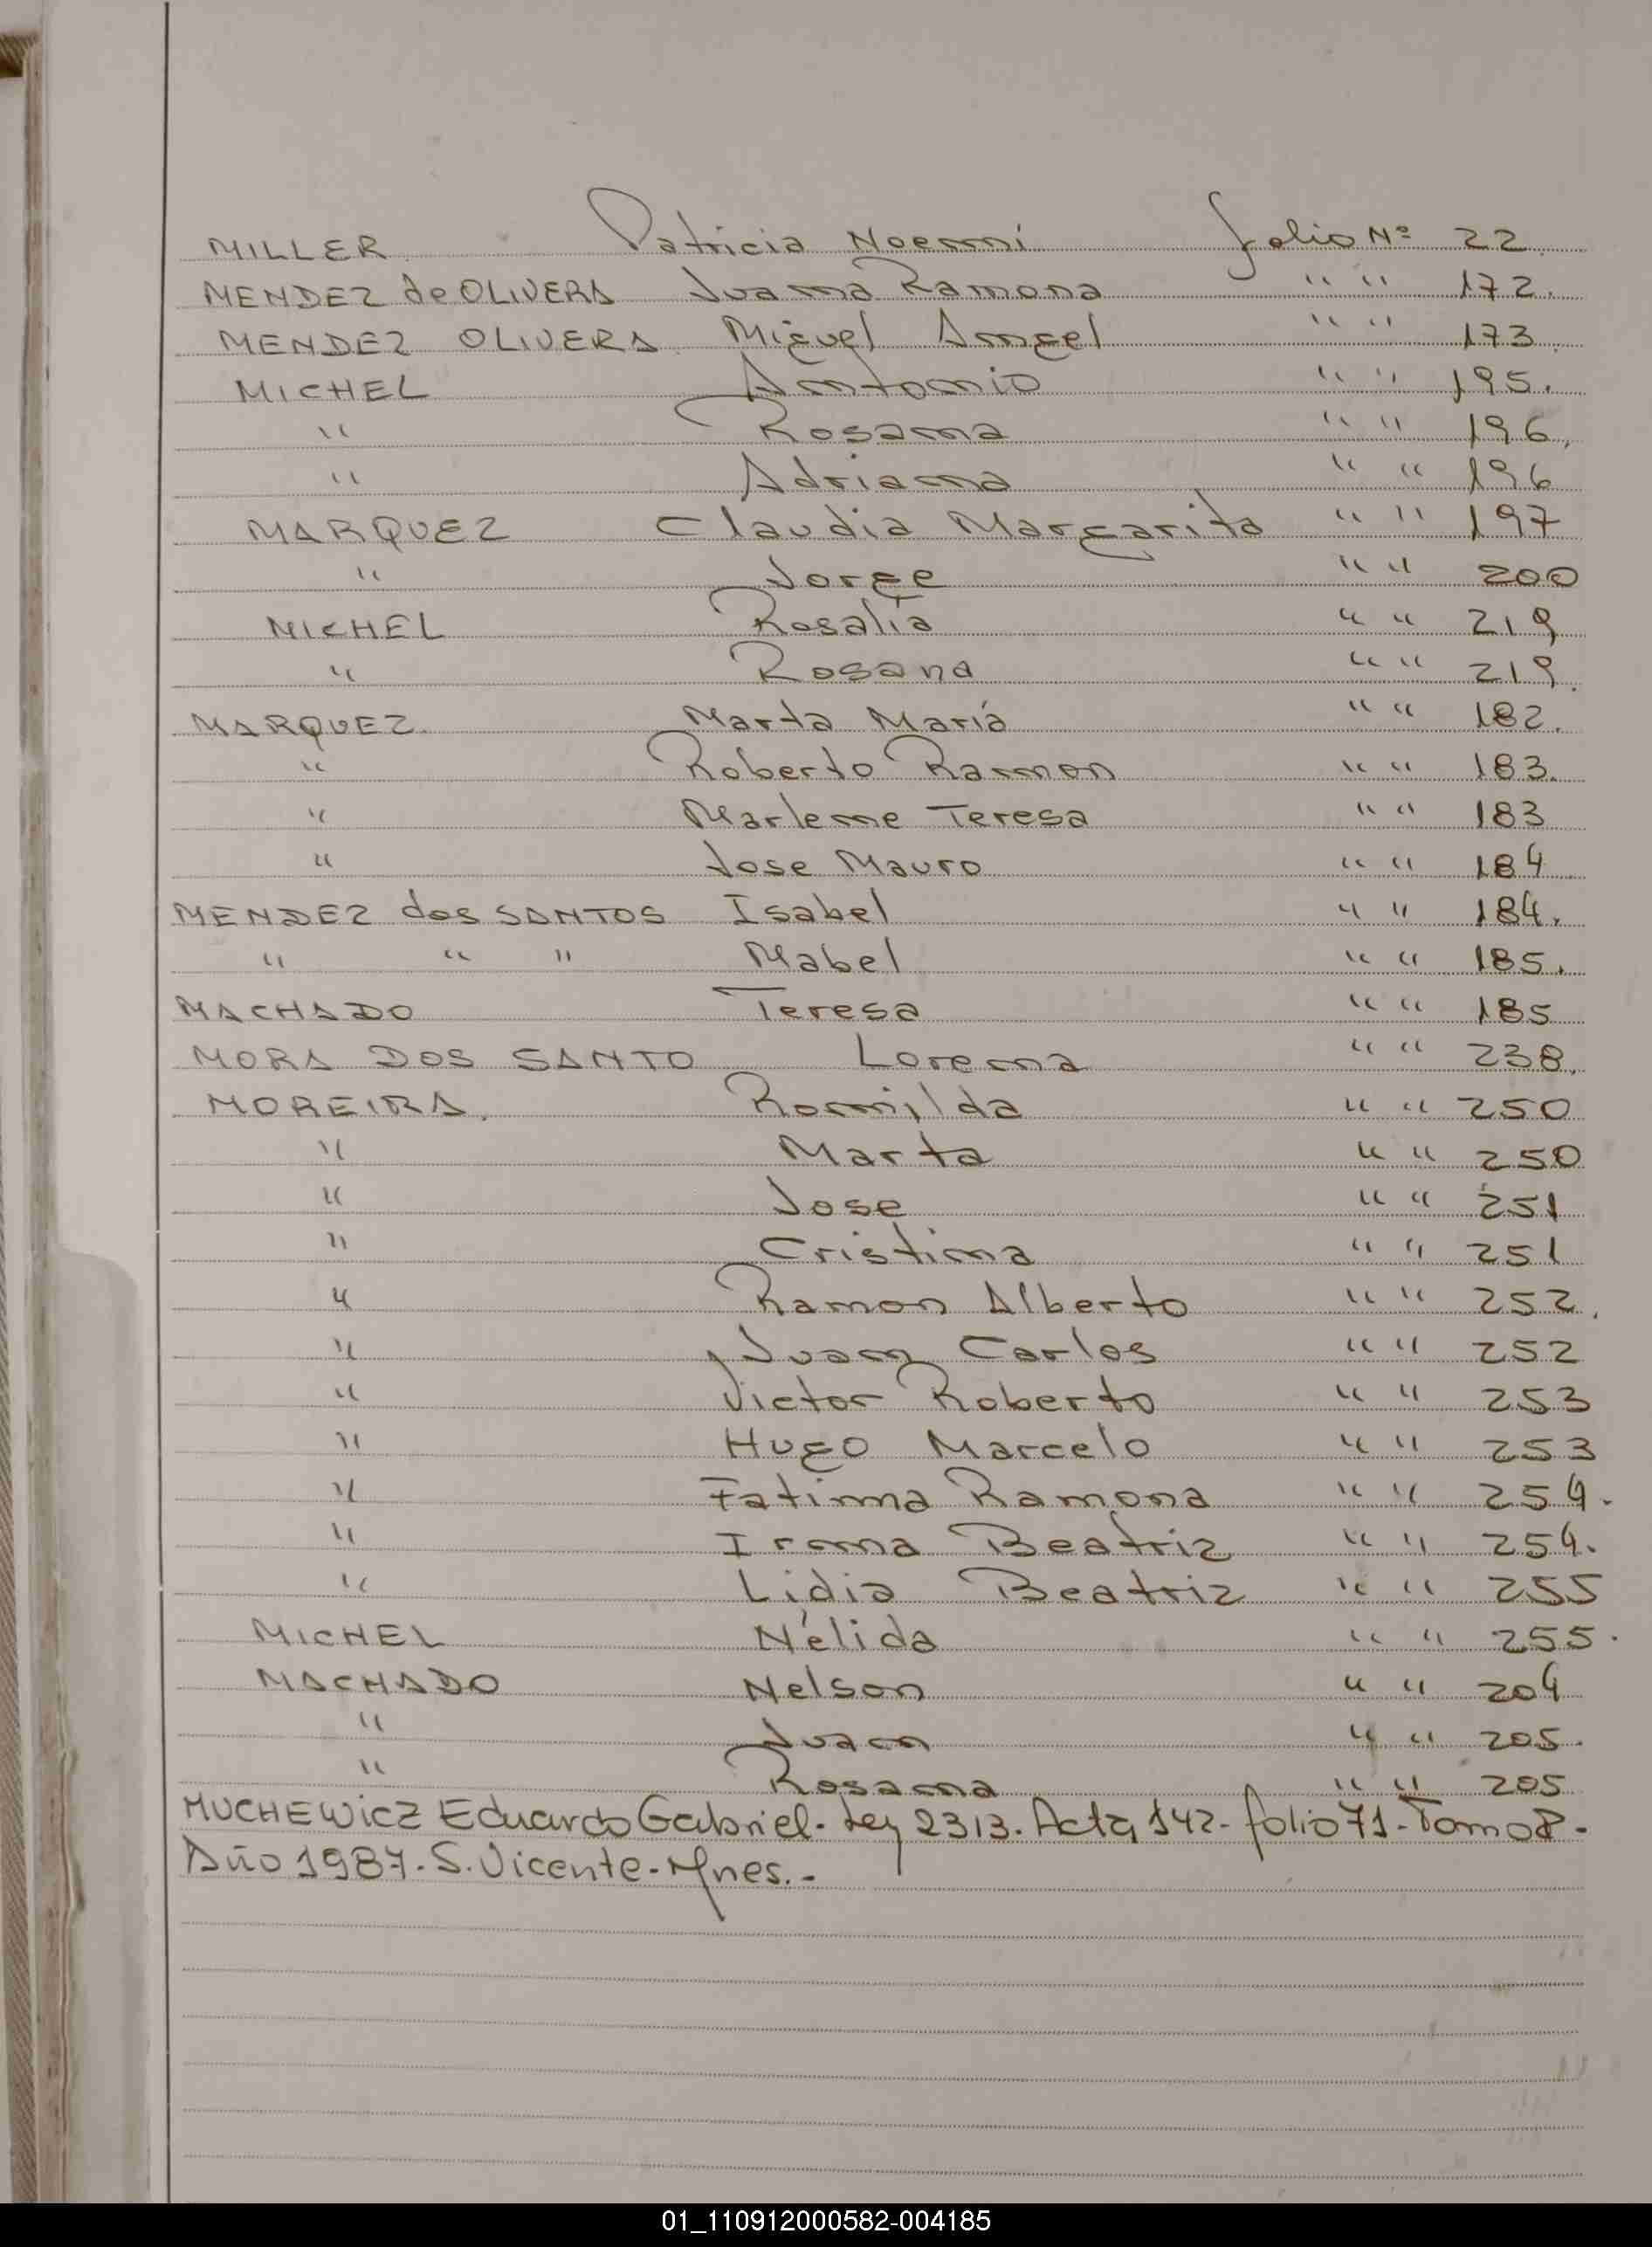 MILLER Patricia Noemi folio Nº 22
MENDEZ de OLIVERA Juana Ramona " " 172.
MENDEZ OLIVERA Miguel Angel " " 173.
MICHEL Antonio " " 195.
" Rosana " " 196.
" Adriana " " 196
MARQUEZ Claudia Margarita " " 197
" Jorge " " 200
MICHEL Rosalia " " 219
" Rosana " " 219.
MARQUEZ Marta María " " 182.
" Roberto Ramon " " 183.
" Marlene Teresa " " 183
" Jose Mauro " " 184
MENDEZ dos SANTOS Isabel " " 184.
" " " Mabel " " 185.
MACHADO Teresa " " 185
MORA DOS SANTO Lorena " " 238.
MOREIRA. Romilda " " 250
" Marta " " 250
" Jose " " 251
" Cristina " " 251
" Ramon Alberto " " 252.
" Juan Carlos " " 252
" Victor Roberto " " 253
" Hugo Marcelo " " 253
" Fatima Ramona " " 254.
" Irma Beatriz " " 254.
" Lidia Beatriz " " 255
MICHEL Nélida " " 255.
MACHADO Nelson " " 204
" Juan " " 205.
" Rosana " " 205
MUCHEWicZ Eduardo Gabriel. Ley 2313. Acta 142- folio 71- Tomo 8.-
Año 1987. S. Vicente. Mnes. -
01_110912000582-004185